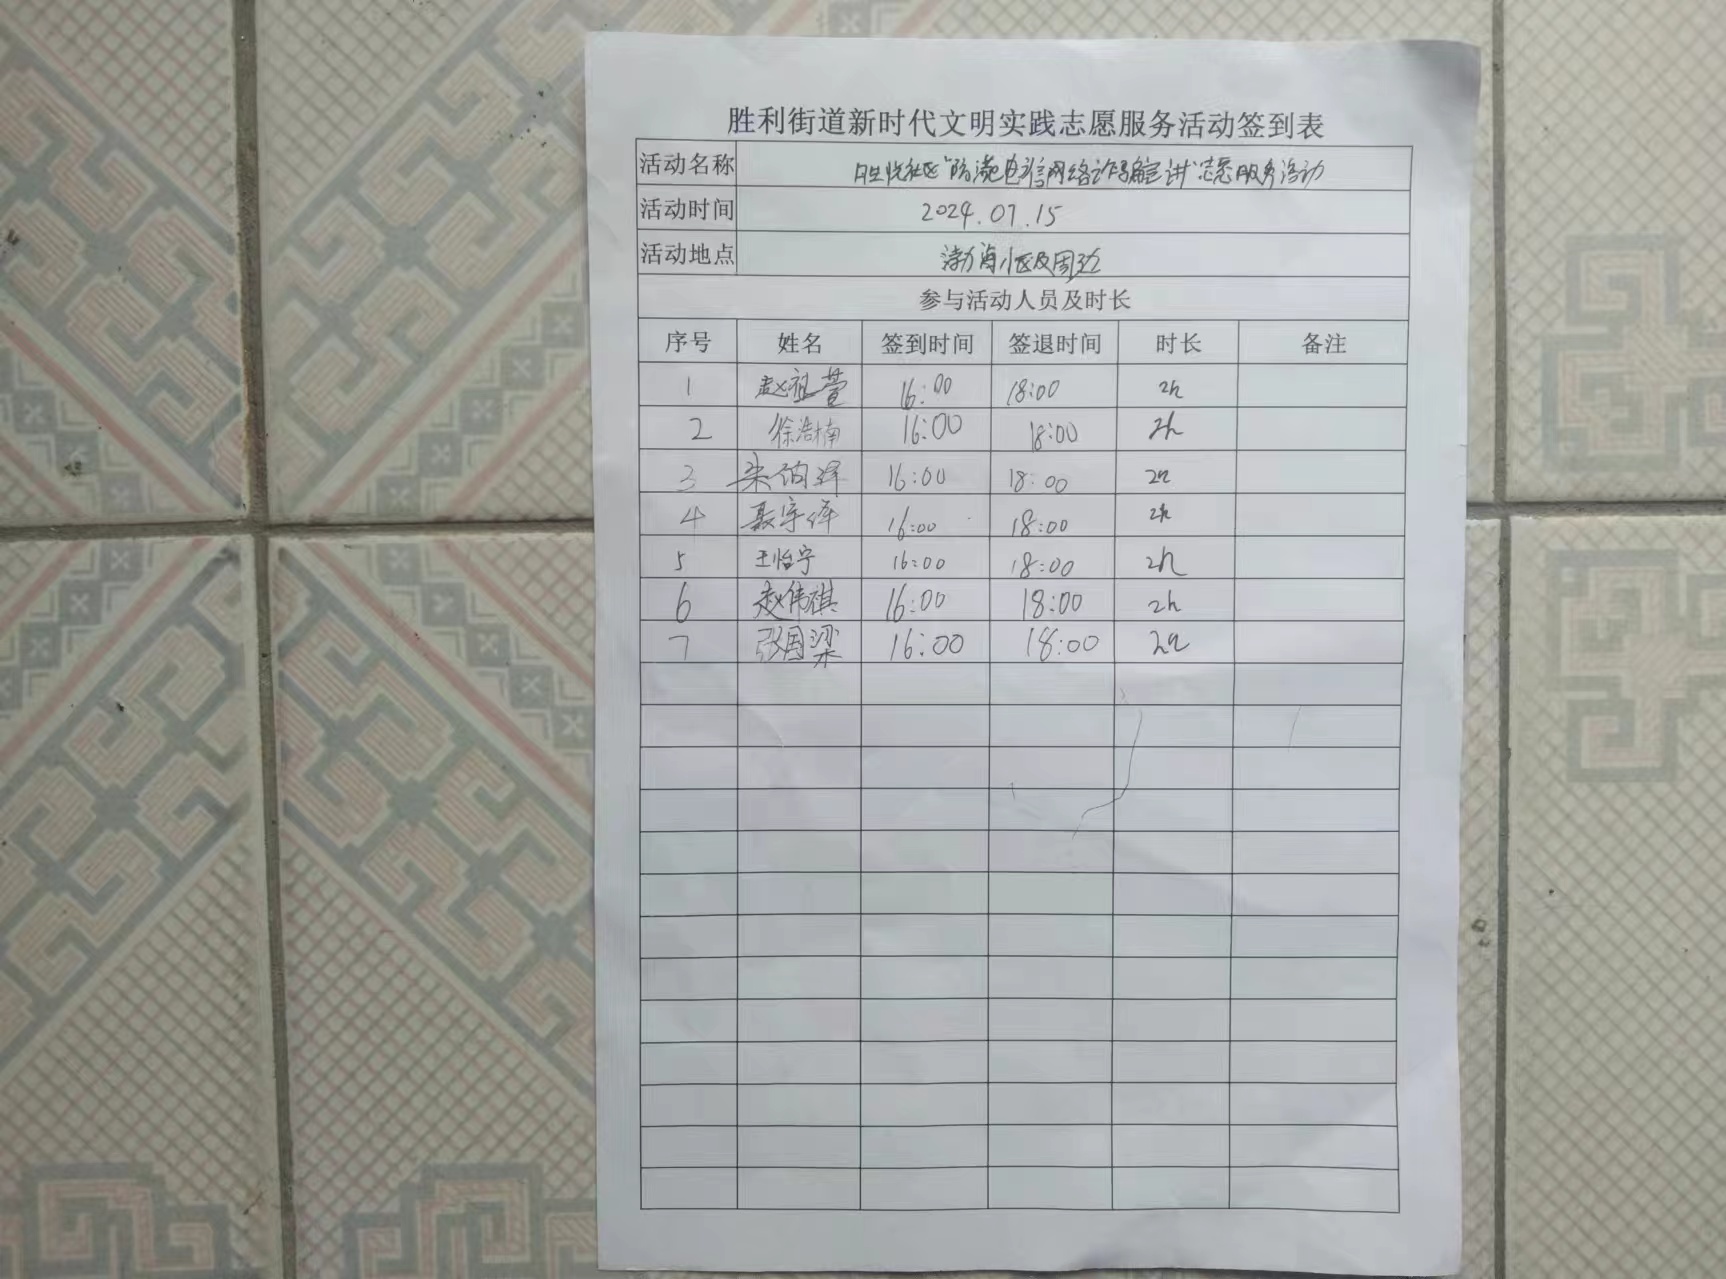 胜利街道新时代文明实践志愿服务活动签到表
活动名称 胜悦社区"防范电信网络诈骗宣讲"志愿服务活动
活动时间 2024.07.15
活动地点 渤海小区及周边
参与活动人员及时长
序号 姓名 签到时间 签退时间 时长 备注
1 赵祖萱 16:00 18:00 2h
2 徐浩楠 16:00 18:00 2h
3 16:00 18:00 2h
4 聂宇 16:00 18:00 2h
5 王怡宁 16:00 18:00 2h
6 赵伟祺 16:00 18:00 2h
7 张国梁 16:00 18:00 2h